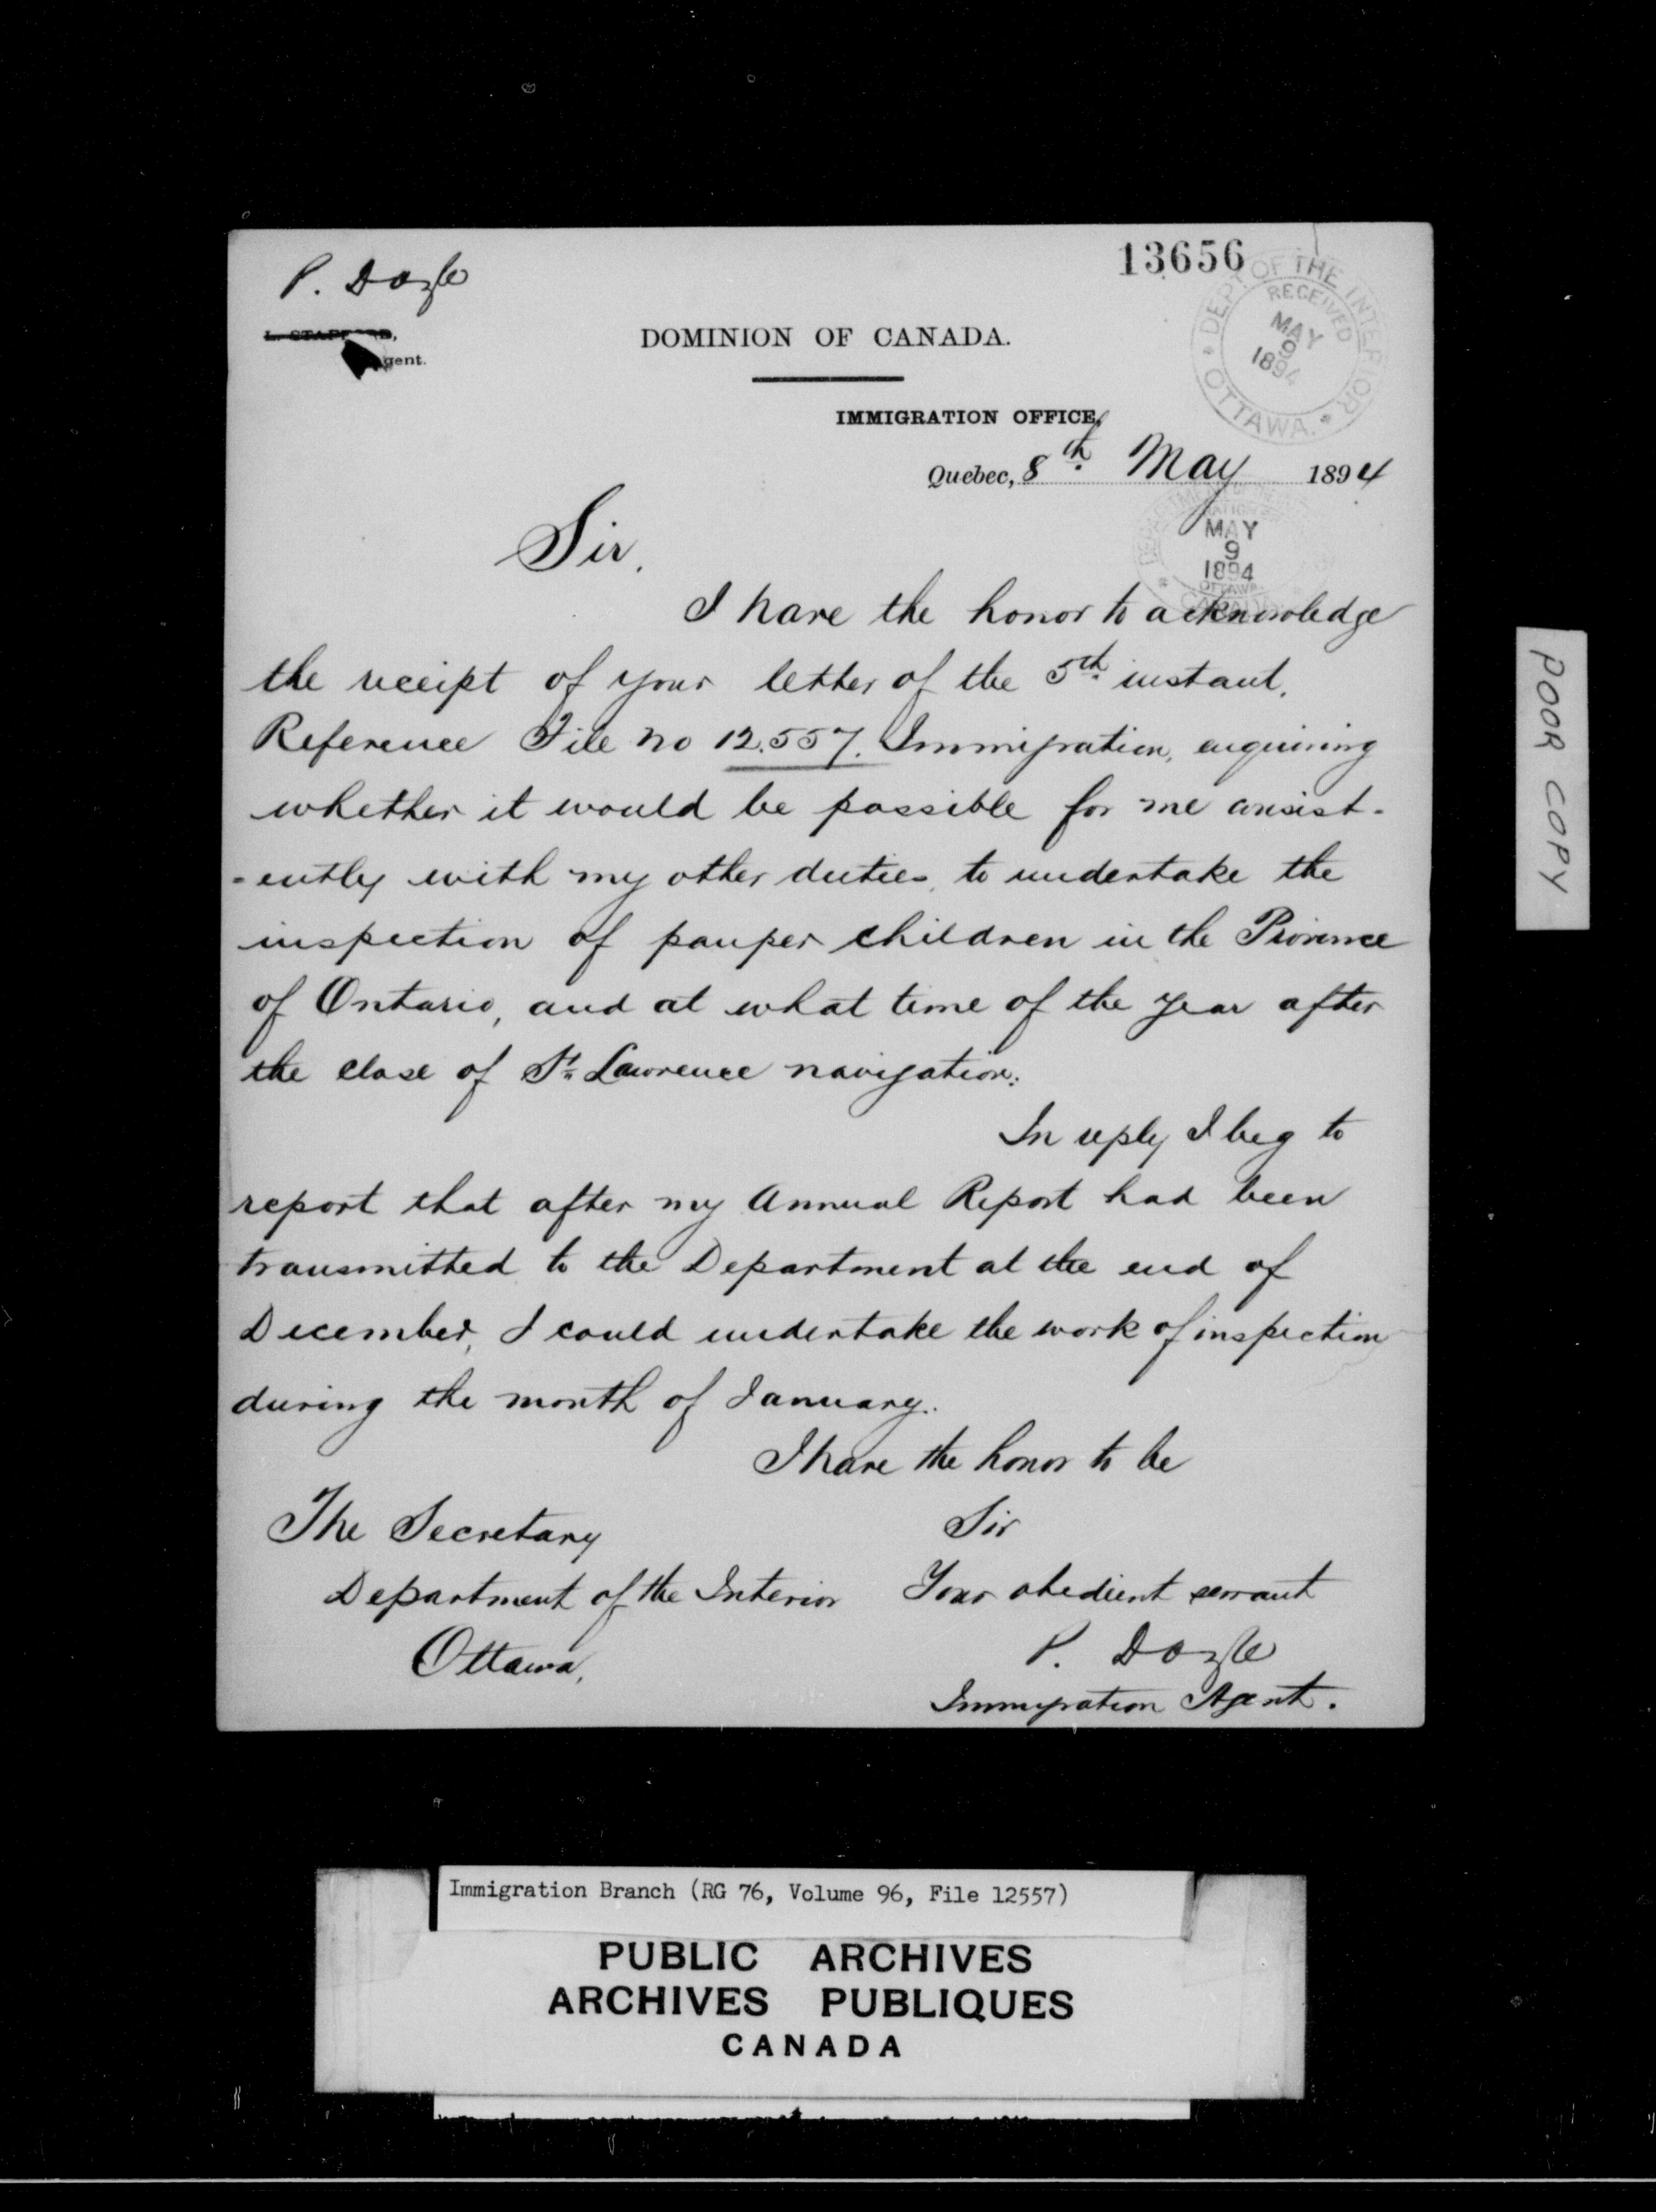 13656
P. Doyle
L. STAFFORD,
Agent.
DEPT. OF THE INTERIOR
RECEIVED
MAY
9
1894
OTTAWA.
DOMINION OF CANADA.
IMMIGRATION OFFICE,
Quebec, 8th. May 1894
MAY
9
1894
OTTAWA
CANADA
Sir,
I have the honor to acknowledge
the receipt of your letter of the 5th. instant,
Reference File No 12.557. Immigration, enquiring
whether it would be possible for me consist-
-ently with my other duties, to undertake the
inspection of pauper children in the Province
of Ontario, and at what time of the year after
the close of St. Lawrence navigation.
In reply I beg to
report that after my Annual Report had been
transmitted to the Department at the end of
December, I could undertake the work of inspection
during the month of January.
I have the honor to be
Sir
Your obedient servant
P. Doyle
Immigration Agent.
The Secretary
Department of the Interior
Ottawa,
POOR COPY
Immigration Branch (RG 76, Volume 96, File 12557)
PUBLIC ARCHIVES
ARCHIVES PUBLIQUES
CANADA